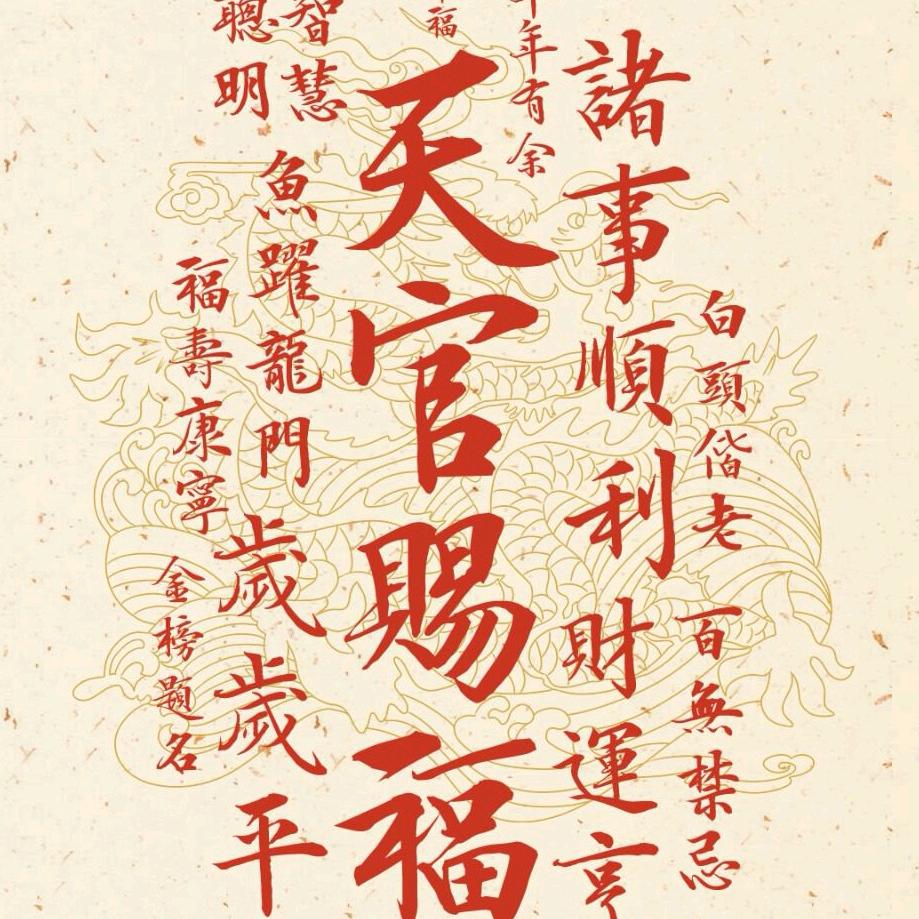 白頭偕老
百無禁忌
諸事順利
財運亨
年年有余
福
天官賜福
智慧
聰明
魚躍龍門
歲歲平
福壽康寧
金榜題名